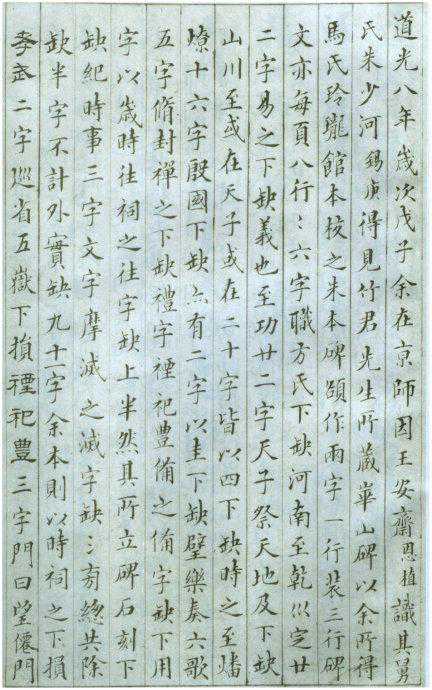 道光八年歲次戊子余在京師因王安齋恩植識其舅
氏朱少河錫庚得見竹君先生所藏華山碑以余所得
馬氏玲瓏館本校之朱本碑頌作兩字一行裝三行碑
文亦每頁八行〻六字職方氏下缺河南至乾似定廿
二字易之下缺義也至功廿二字天子祭天地及下缺
山川至或在天子或在二十字皆以四下缺時之至燔
燎十六字殷國下缺亦有二字以圭下缺壁樂奏六歌
五字脩封禪之下缺禮字禋祀豐備之脩字缺下用
字以歲時往祠之往字缺上半然其所立碑石刻下
缺紀時事三字文字摩滅之滅字缺〻有總共除
缺半字不計外實缺九十一字余本則以時祠之下損
孝武二字巡省五嶽下損禋祀豐三字門曰望僊門